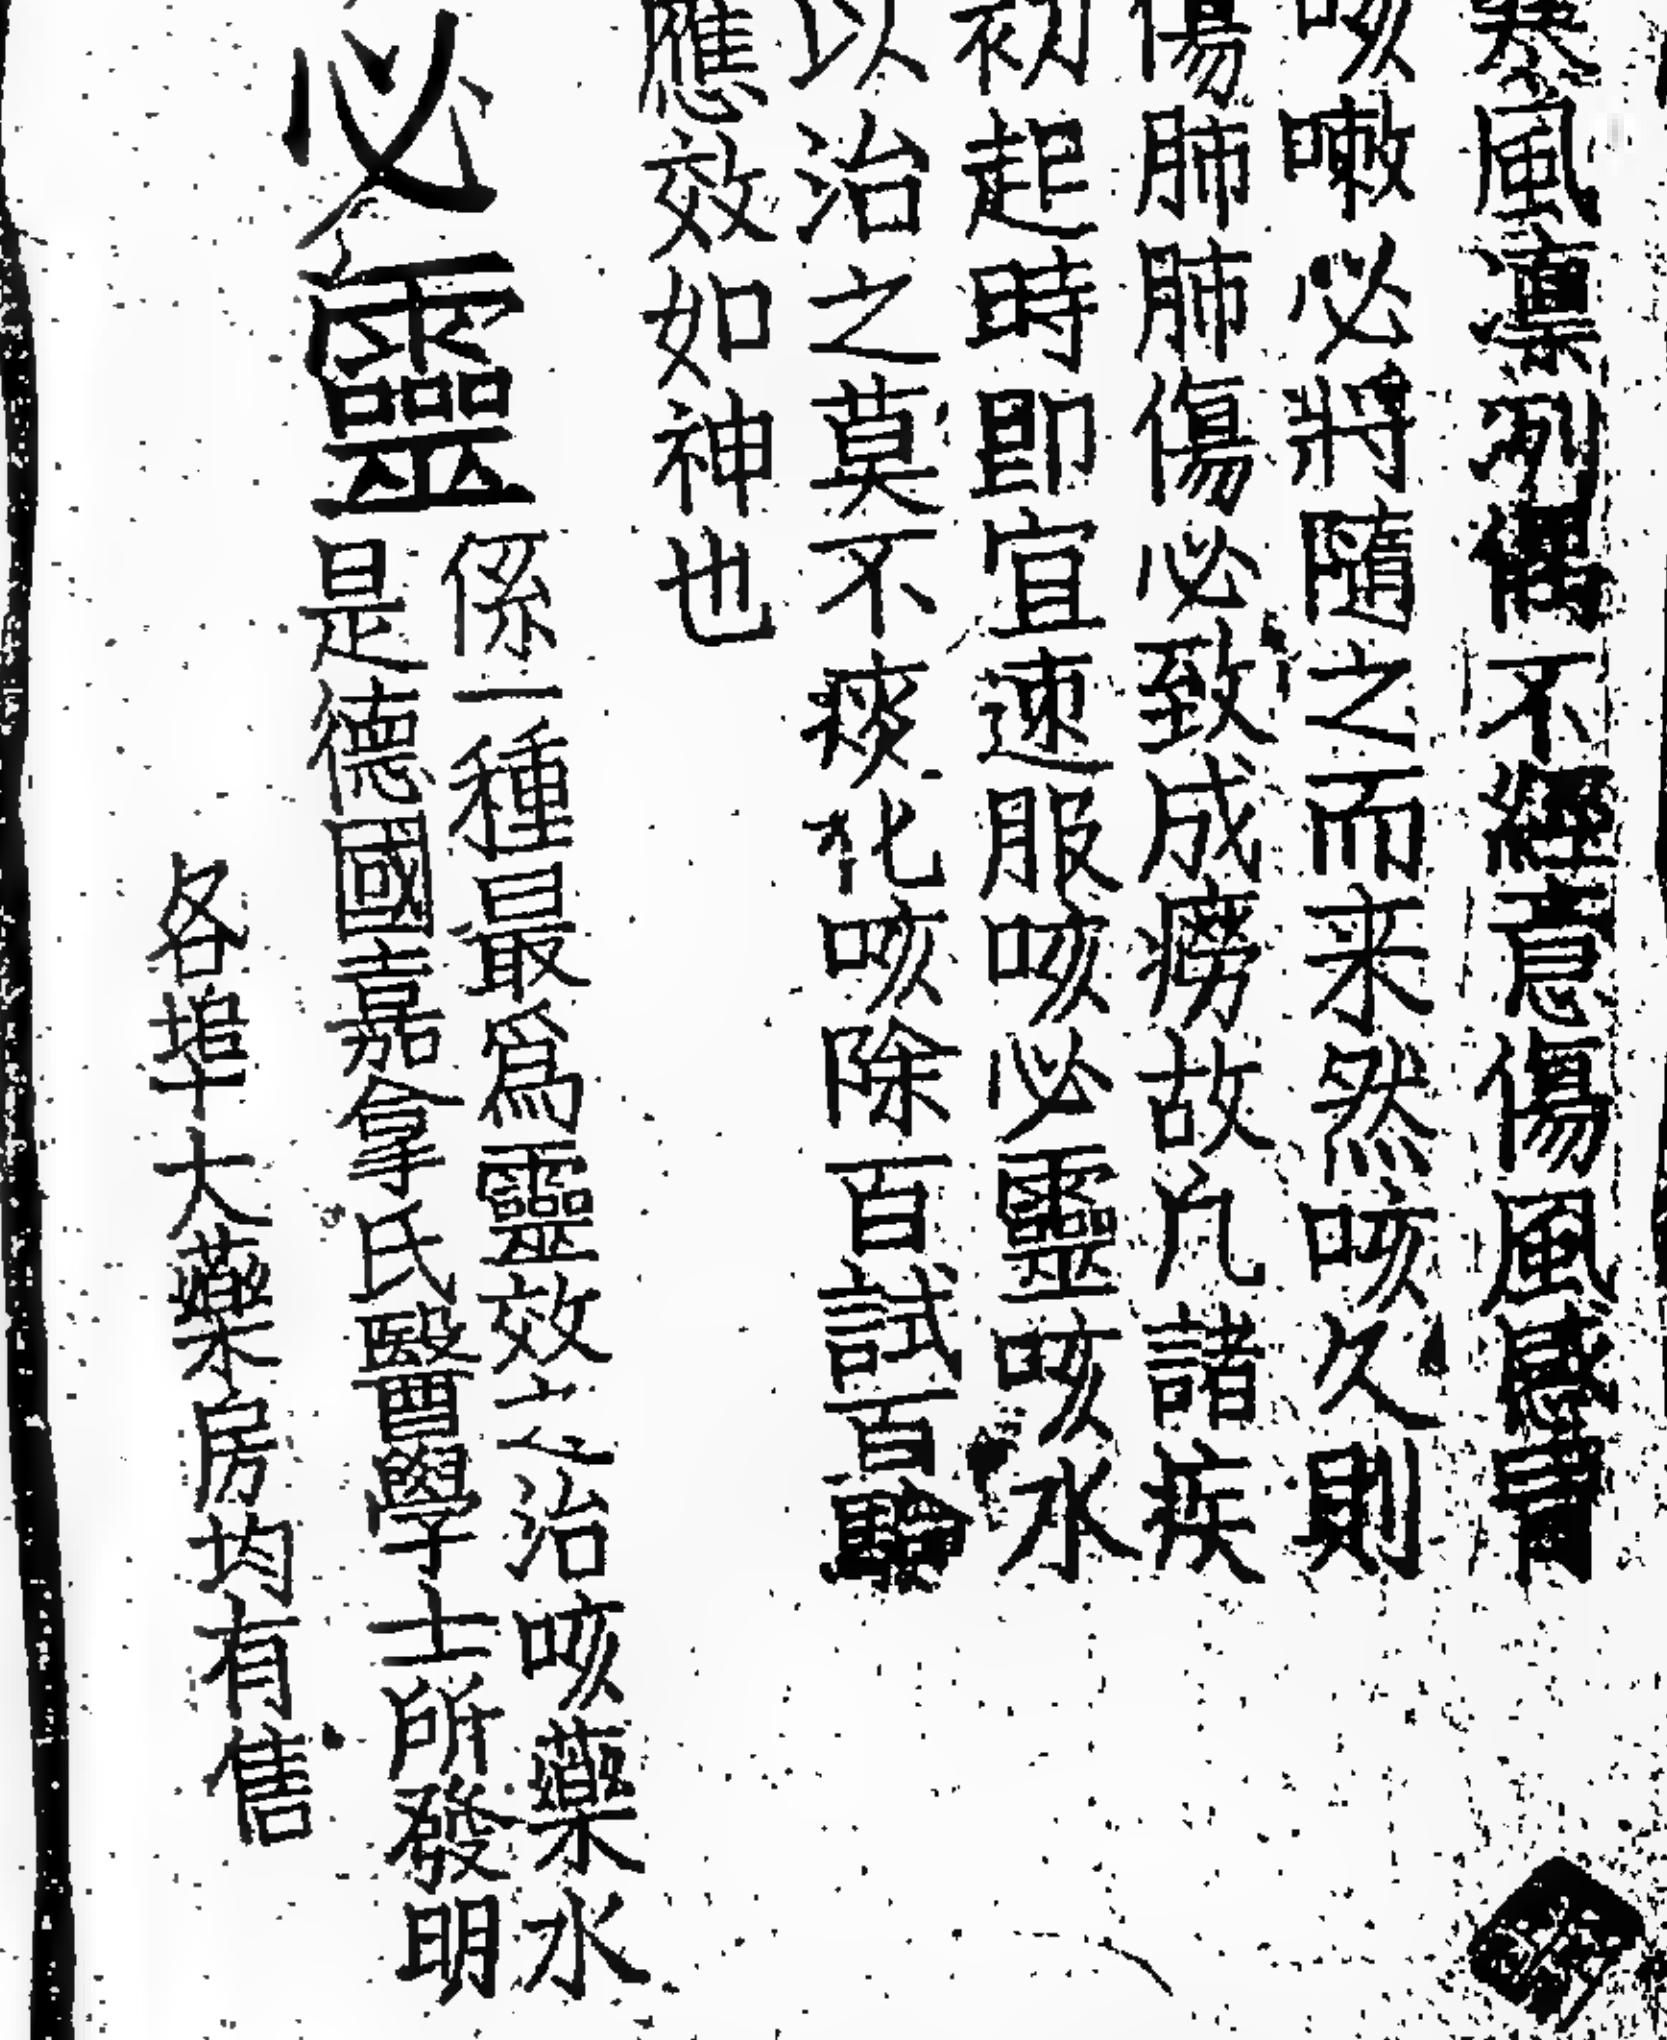 寒風凛冽偶不經意傷風感冒
咳嗽必將隨之而来然咳久則
傷肺肺傷必致成癆故凡諸疾
初起時即宜速服咳必靈咳水
以治之莫不痰化咳除百試百驗
應效如神也
必靈
係一種最爲靈效之治咳藥水
是德國嘉拿氏醫學士所發明
各埠大藥房均有售